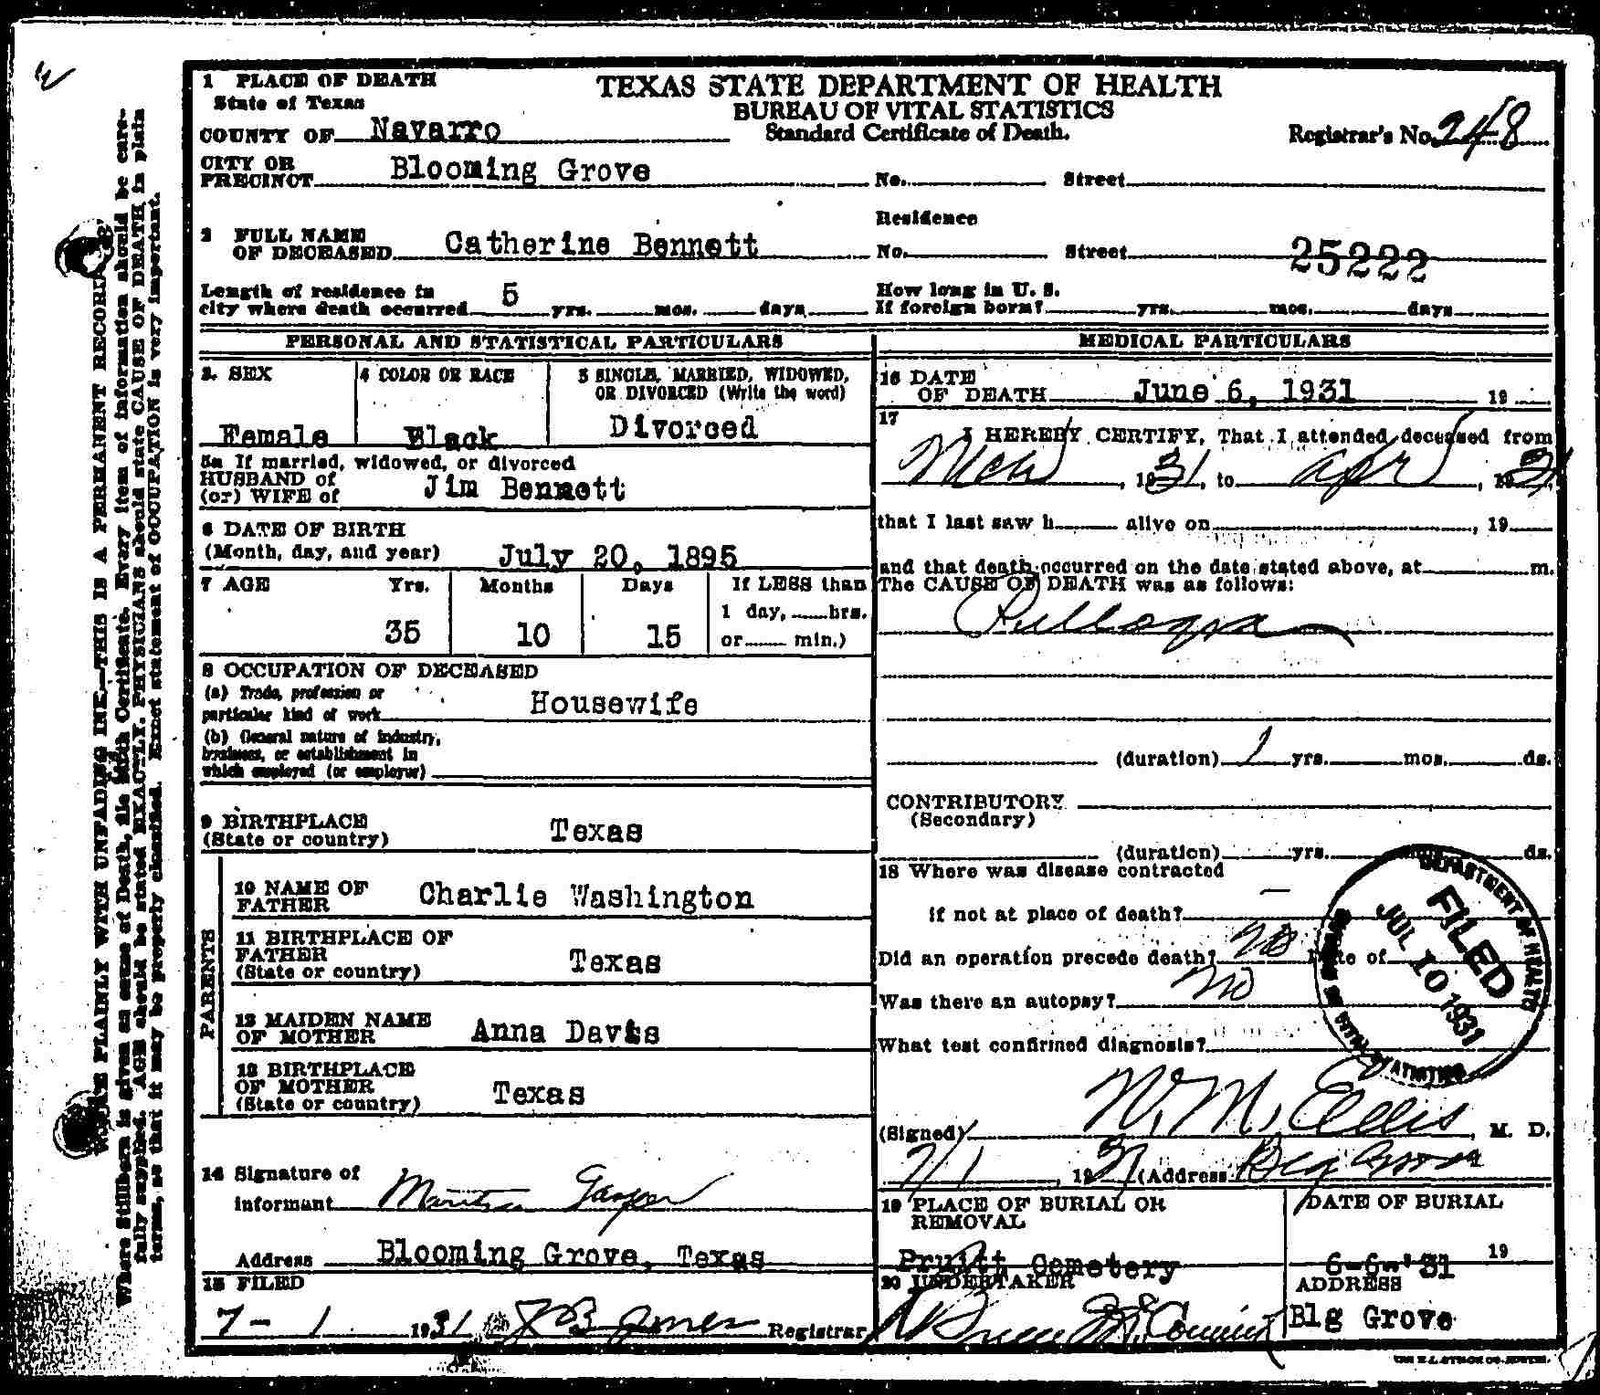 1 PLACE OF DEATH
State of Texas
COUNTY OF Navarro
CITY OR
PRECINCT Blooming Grove
TEXAS STATE DEPARTMENT OF HEALTH
BUREAU OF VITAL STATISTICS
Standard Certificate of Death.
Registrar's No. 248
No. Street
2 FULL NAME
OF DECEASED Catherine Bennett
Residence
No. Street 25222
Length of residence in
city where death occurred 5 yrs. mos. days
How long in U. S.
If foreign born? yrs. mos. days
PERSONAL AND STATISTICAL PARTICULARS
3. SEX
Female
4 COLOR OR RACE
Black
5 SINGLE, MARRIED, WIDOWED,
OR DIVORCED (Write the word)
Divorced
5a If married, widowed, or divorced
HUSBAND of
(or) WIFE of Jim Bennett
6 DATE OF BIRTH
(Month, day, and year) July 20, 1895
7 AGE Yrs. Months Days If LESS than
1 day, hrs.
35 10 15 or min.)
8 OCCUPATION OF DECEASED
(a) Trade, profession or
particular kind of work Housewife
(b) General nature of industry,
business, or establishment in
which employed (or employer)
9 BIRTHPLACE
(State or country) Texas
PARENTS
10 NAME OF
FATHER Charlie Washington
11 BIRTHPLACE OF
FATHER
(State or country) Texas
12 MAIDEN NAME
OF MOTHER Anna Davis
13 BIRTHPLACE
OF MOTHER
(State or country) Texas
14 Signature of
informant
Address Blooming Grove, Texas
15 FILED
7-1 1931 J B Jones Registrar
MEDICAL PARTICULARS
16 DATE
OF DEATH June 6, 1931 19
17
I HEREBY CERTIFY, That I attended deceased from
Mch 1931, to Apr, 1931
that I last saw h alive on , 19
and that death occurred on the date stated above, at m.
The CAUSE OF DEATH was as follows:
Pellagra
(duration) 1 yrs. mos. ds.
CONTRIBUTORY
(Secondary)
(duration) yrs. mos. ds.
18 Where was disease contracted
if not at place of death? —
Did an operation precede death? no Date of
Was there an autopsy? no
What test confirmed diagnosis?
DEPARTMENT OF HEALTH
FILED
JUL 10 1931
BUREAU OF VITAL STATISTICS
(Signed) W. M. Ellis, M. D.
7/1, 1931 (Address) Blg Grove
19 PLACE OF BURIAL OR
REMOVAL
Pruitt Cemetery
DATE OF BURIAL
6-6-'31 19
20 UNDERTAKER
ADDRESS
Blg Grove
WRITE PLAINLY WITH UNFADING INK—THIS IS A PERMANENT RECORD
Where Stillborn is given as cause of Death, file Birth Certificate. Every item of information should be care-
fully supplied. AGE should be stated EXACTLY. PHYSICIANS should state CAUSE OF DEATH in plain
terms, so that it may be properly classified. Exact statement of OCCUPATION is very important.